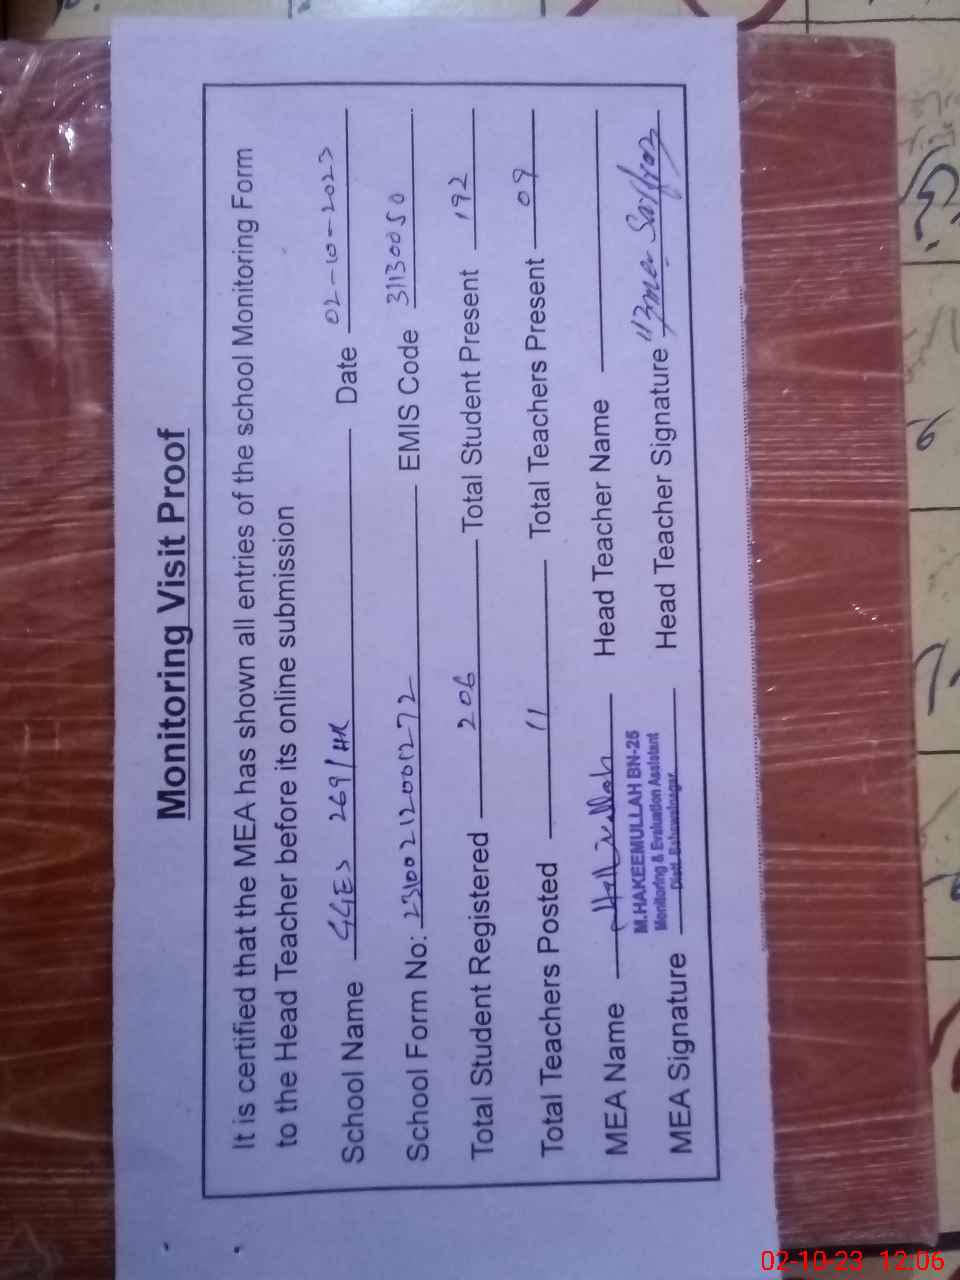 Monitoring Visit Proof
It is certified that the MEA has shown all entries of the school Monitoring Form
to the Head Teacher before its online submission
School Name GGES 269/HR Date 02-10-2023
School Form No: 231002120001272 EMIS Code 31130050
Total Student Registered 206 Total Student Present 192
Total Teachers Posted 11 Total Teachers Present 09
MEA Name Head Teacher Name
M.HAKEEMULLAH BN-26
Monitoring & Evaluation Assistant
Distt. Bahawalnagar.
MEA Signature Head Teacher Signature
02-10-23 12:06